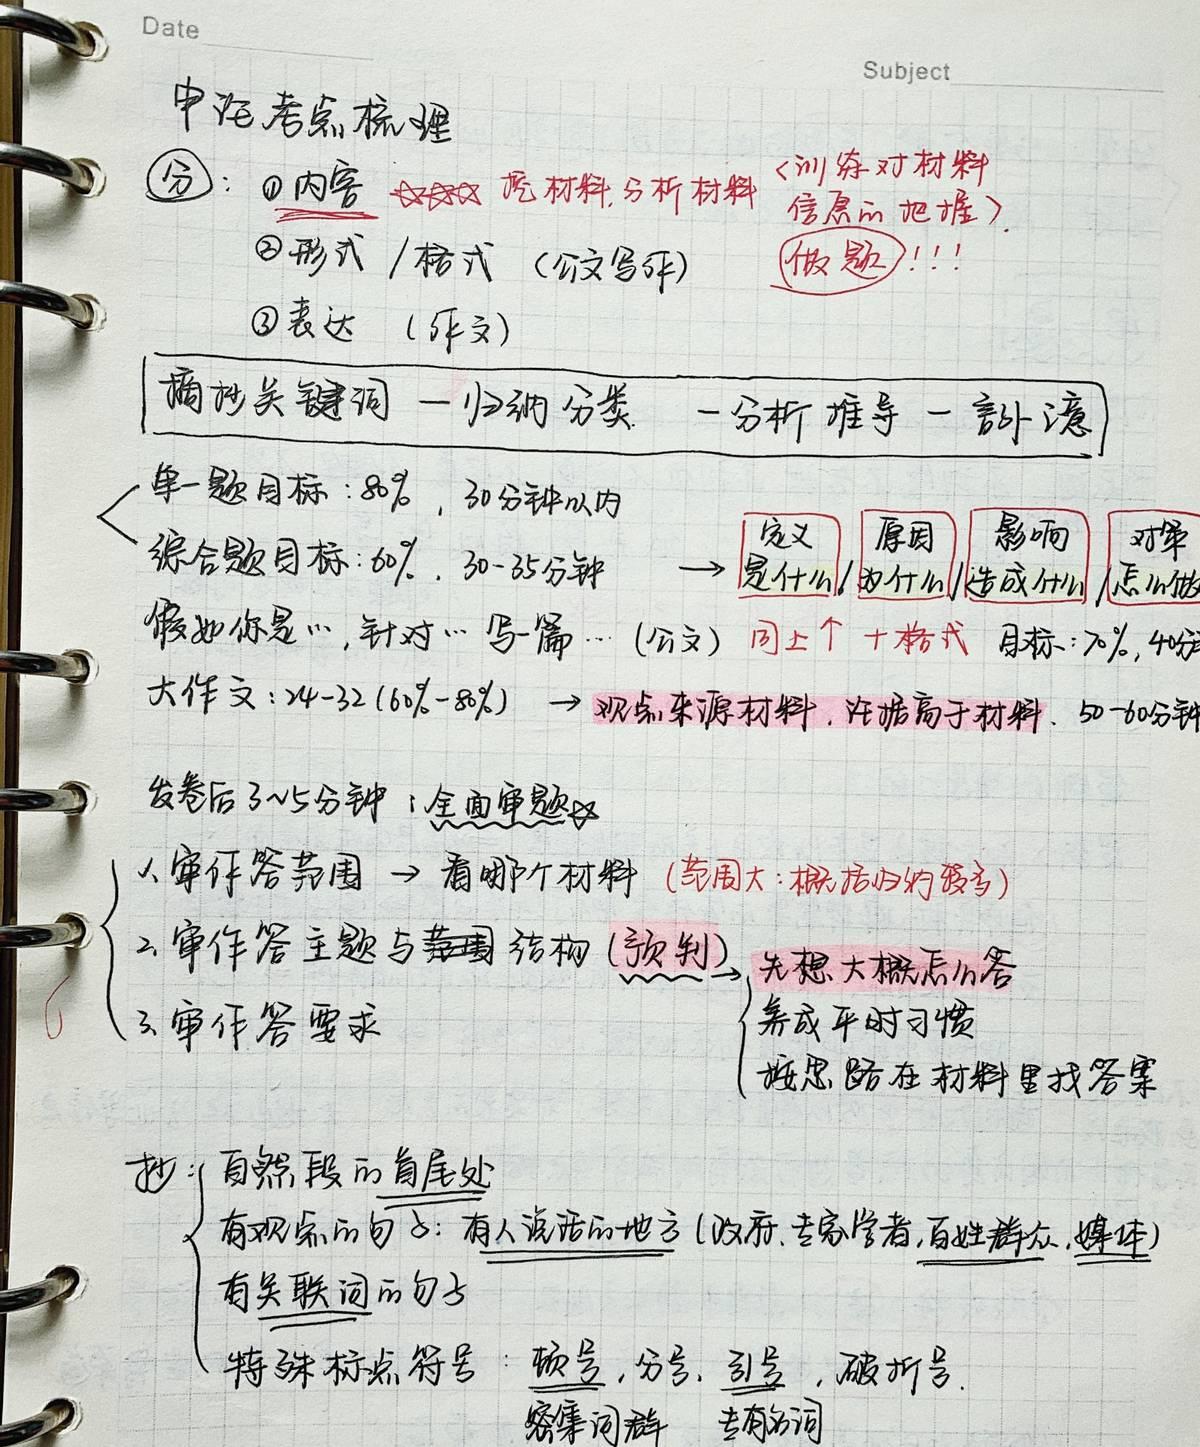 Date
Subject
申论考点梳理
分：①内容 ☆☆☆ 挖材料.分析材料〈训练对材料
信息的把握〉.
②形式/格式（公文写作） 做题！！！
③表达（作文）
摘抄关键词 — 归纳分类 — 分析推导 —
单一题目标：80%，30分钟以内
综合题目标：60%，30-35分钟 → 定义 原因 影响 对策
是什么/为什么/造成什么/怎么做
假如你是…，针对…写一篇…（公文）同上↑+格式 目标：70%，40分
大作文：24-32（60%-80%） → 观点来源材料，论据高于材料. 50-60分钟
发卷后3~5分钟：全面审题☆
1.审作答范围 → 看哪个材料（范围大：概括归纳较多）
2.审作答主题与范围结构（预判）→先想大概怎么答
养成平时习惯
3.审作答要求
按思路在材料里找答案
抄：自然段的首尾处
有观点的句子：有人说话的地方（政府、专家学者，百姓群众，媒体）
有关联词的句子
特殊标点符号：顿号，分号、引号，破折号.
密集词群 专有名词